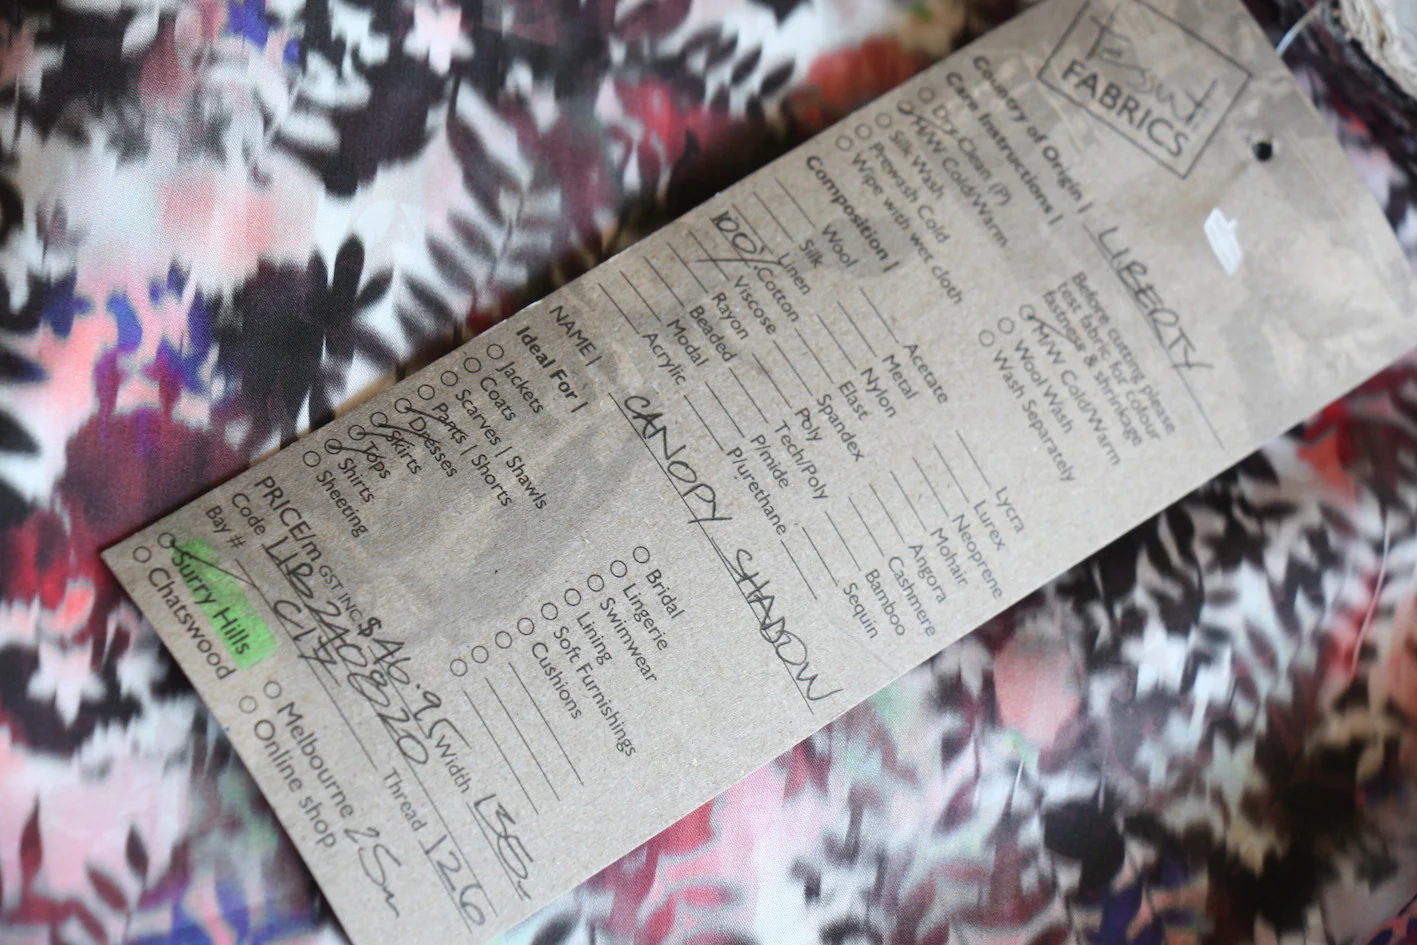 Tessuti
FABRICS
Country of Origin | LIBERTY
Care Instructions |
Dry-Clean (P)
M/W Cold/Warm
Silk Wash
Prewash Cold
Wipe with wet cloth
Before cutting please
test fabric for colour
fastness & shrinkage
M/W Cold/Warm
Wool Wash
Wash Separately
Composition |
Wool
Silk
Linen
100% Cotton
Viscose
Rayon
Beaded
Modal
Acrylic
Acetate
Metal
Nylon
Elast
Spandex
Poly
Tech/Poly
P/mide
P/urethane
Lycra
Lurex
Neoprene
Mohair
Angora
Cashmere
Bamboo
Sequin
NAME | CANOPY SHADOW
Ideal For |
Jackets
Coats
Scarves | Shawls
Pants | Shorts
Dresses
Skirts
Tops
Shirts
Sheeting
Bridal
Lingerie
Swimwear
Lining
Soft Furnishings
Cushions
PRICE/m GST INC. $46.95 Width 135-
Code LIB240820 Thread 126
Bay #
Surry Hills
Chatswood
Melbourne 25m
Online shop